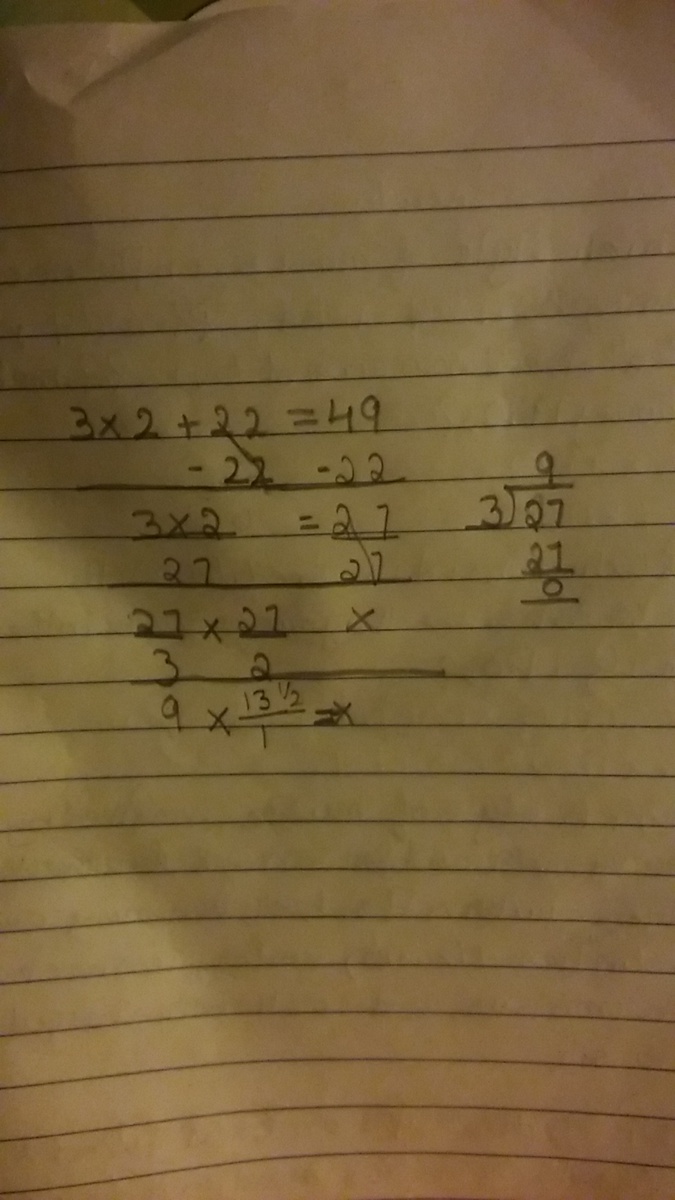 3x2 + 22 = 49
- 22 -22
3x2 = 27
27 27
27 x 27 x
3 2
9 x 13 1/2 = x
1
9
3)27
27
0